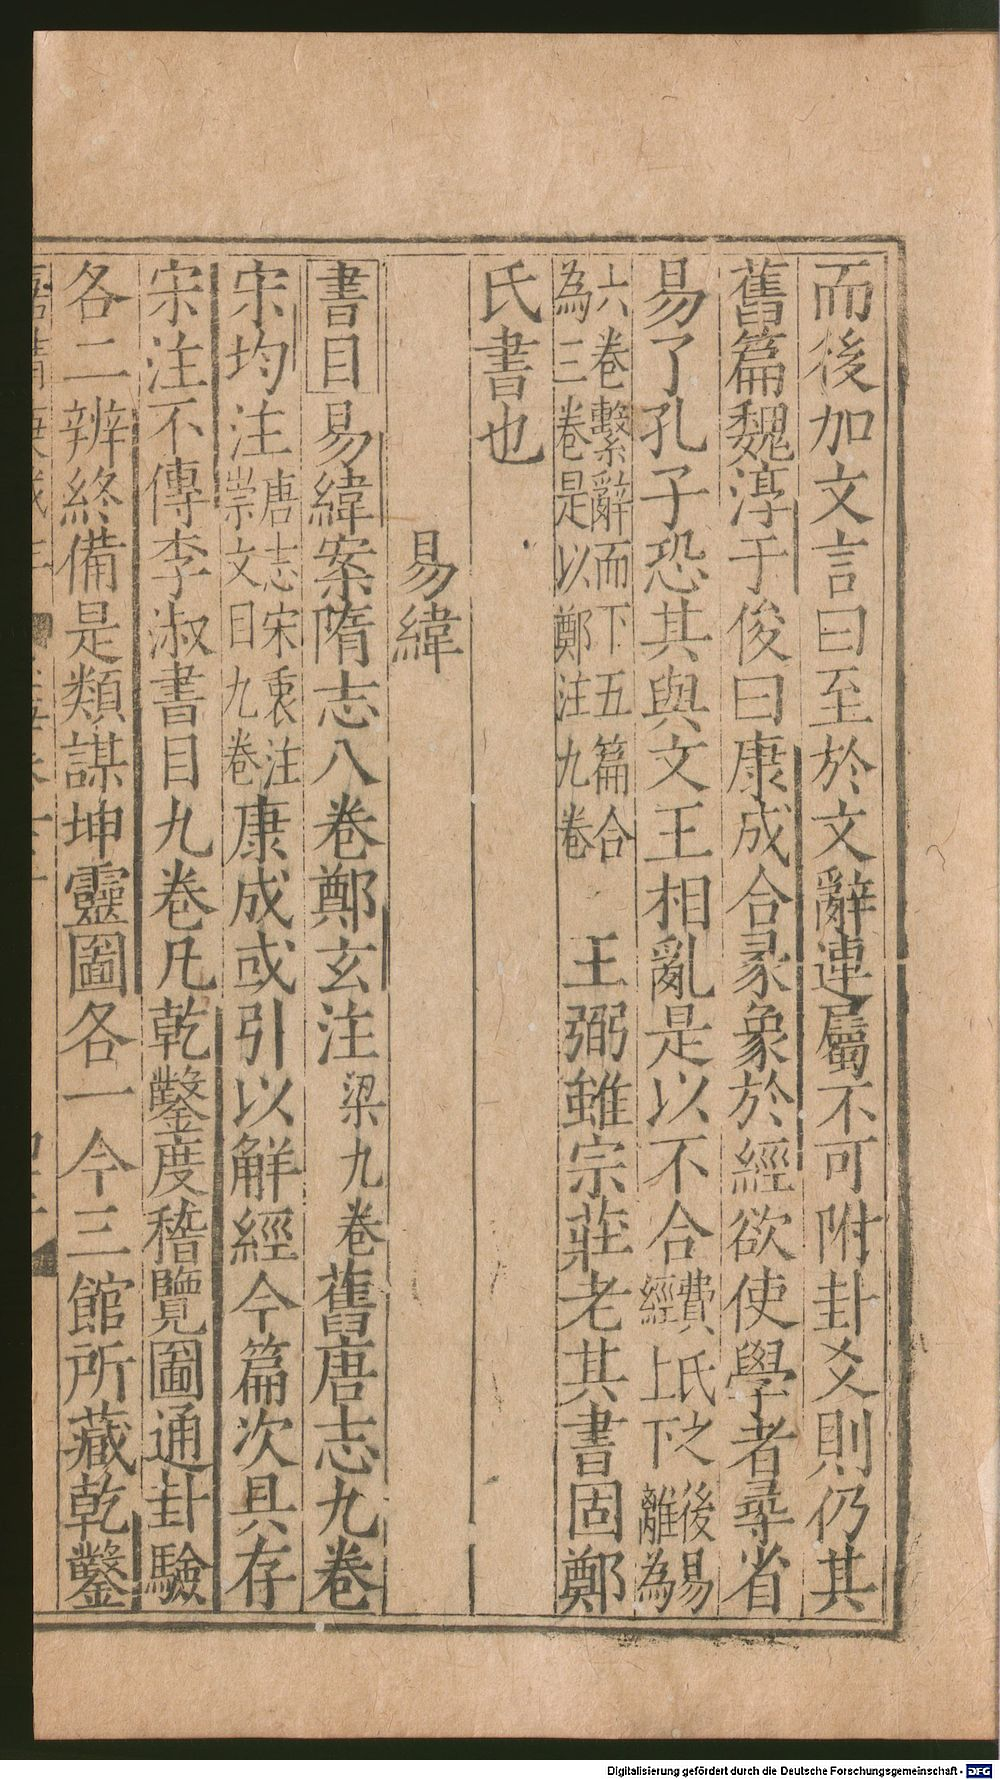 而後加文言曰至於文辭連屬不可附卦爻則仍其
舊篇魏淳于俊曰康成合彖象於經欲使學者尋省
易了孔子恐其與文王相亂是以不合費氏之後易經上下離為
六卷繫辭而下五篇合為三卷是以鄭注九卷 王弼雖宗莊老其書固鄭
氏書也
易緯
書目易緯案隋志八卷鄭玄注梁九卷舊唐志九卷
宋均注唐志宋衷注崇文目九卷康成或引以解經今篇次具存
宋注不傳李淑書目九卷凡乾鑿度稽覽圖通卦驗
各二辨終備是類謀坤靈圖各一今三館所藏乾鑿
Digitalisierung gefördert durch die Deutsche Forschungsgemeinschaft - DFG